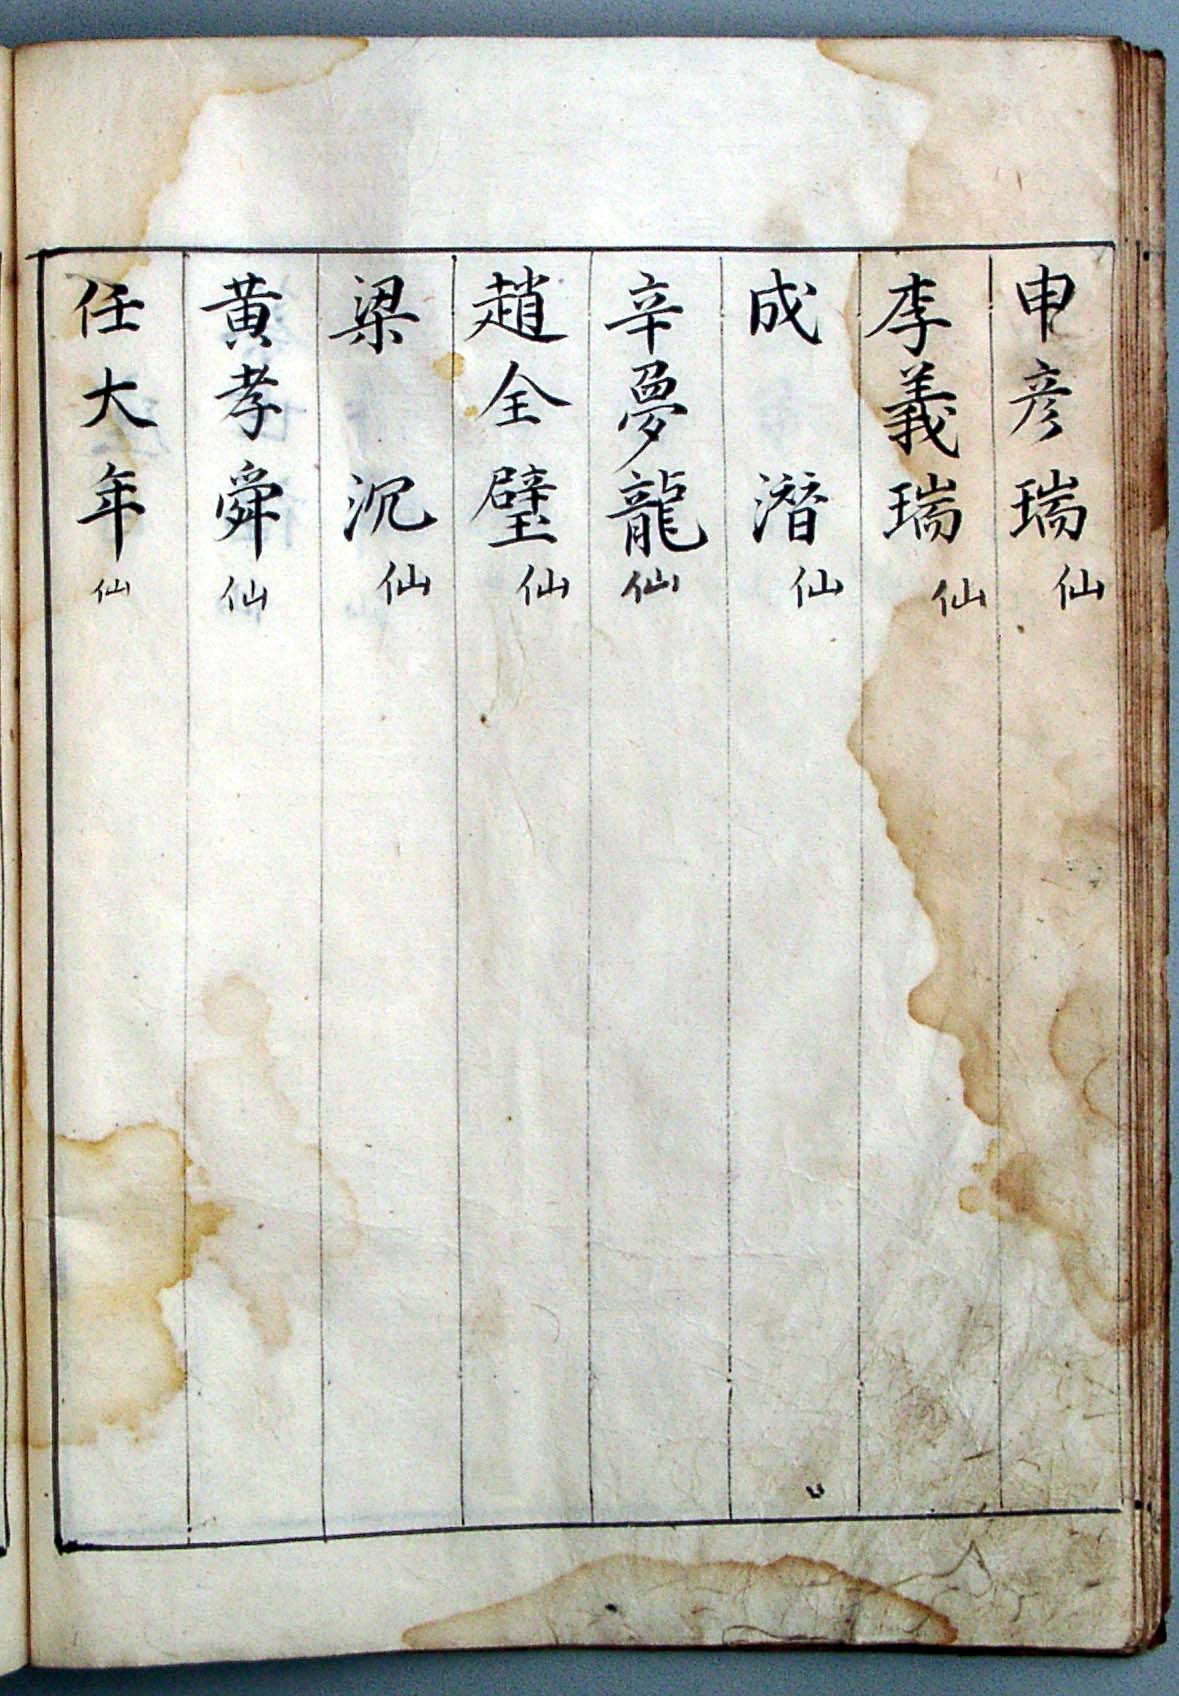 申彦瑞仙
李義瑞仙
成潛仙
辛夢龍仙
趙全璧仙
梁沉仙
黄孝舜仙
任大年仙